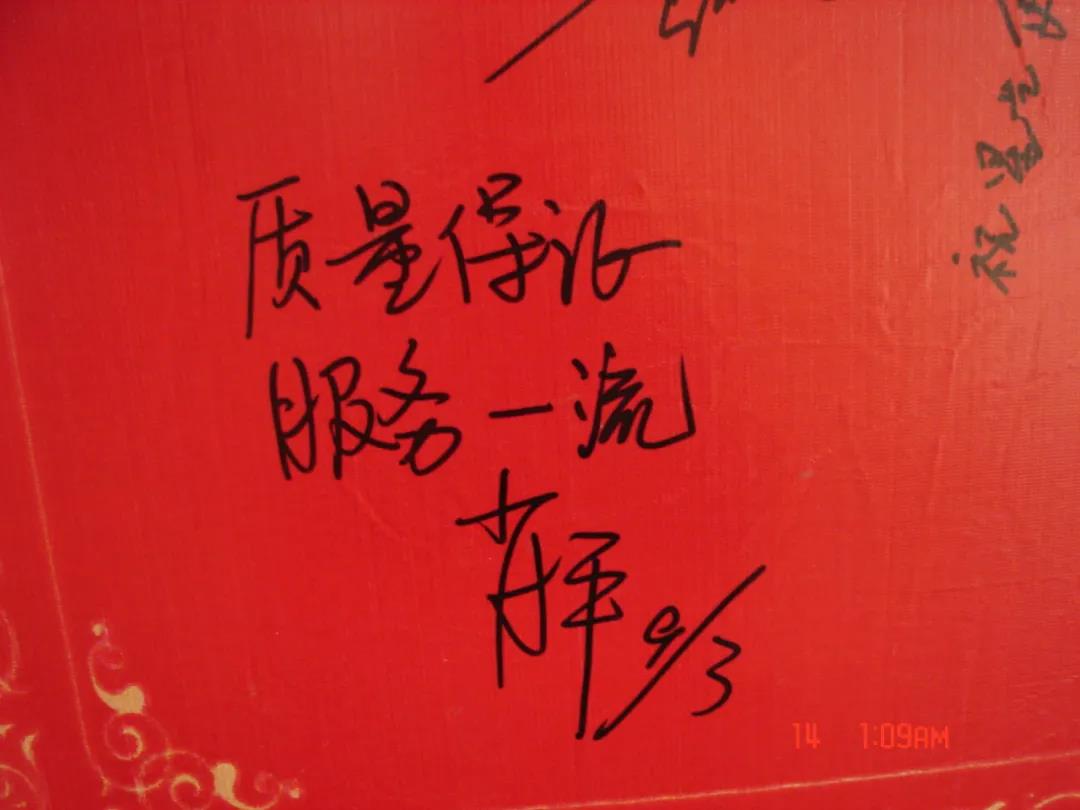 质量保证
服务一流
9/3
祝
14 1:09AM